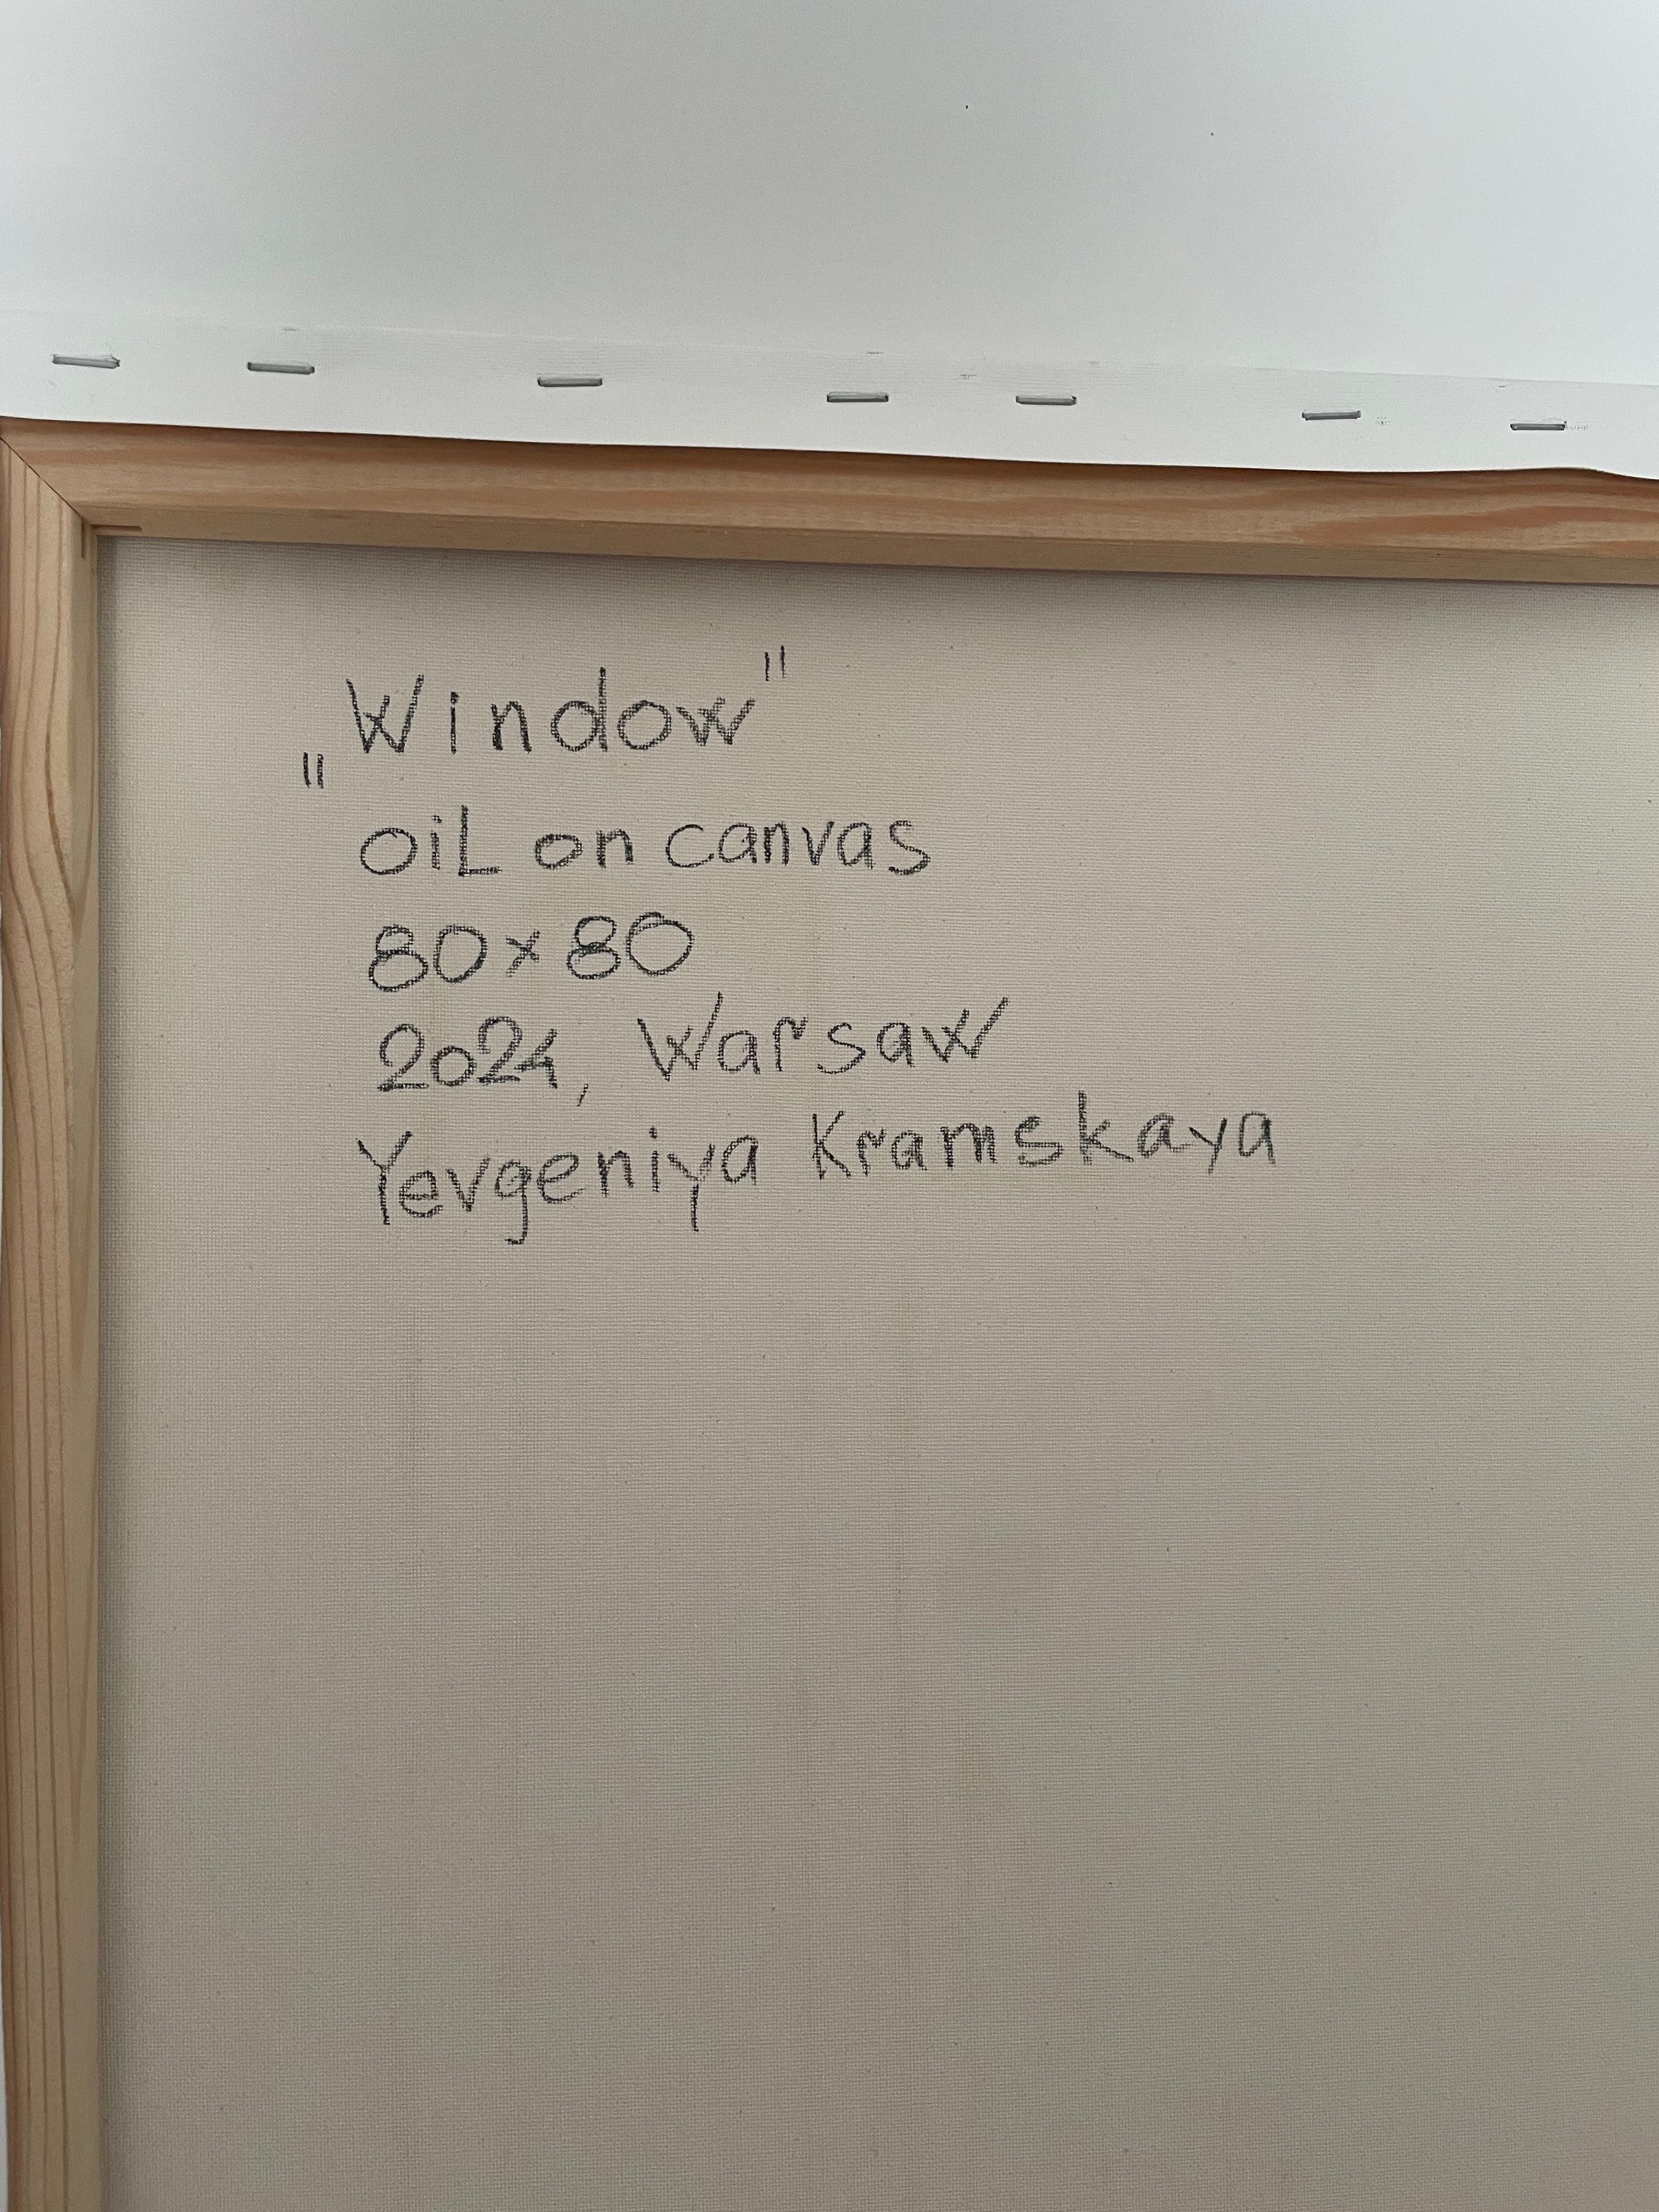 „Window"
oil on canvas
80×80
2024, Warsaw
Yevgeniya Kramskaya